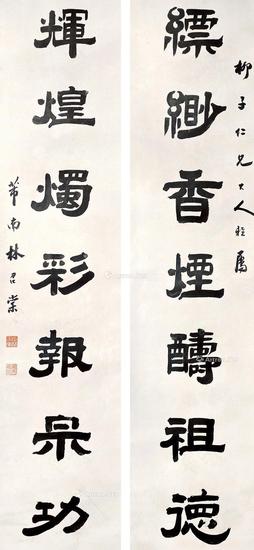 柳子仁兄大人雅屬
縹緲香煙醻祖德
輝煌燭彩報宗功
芾南林召棠